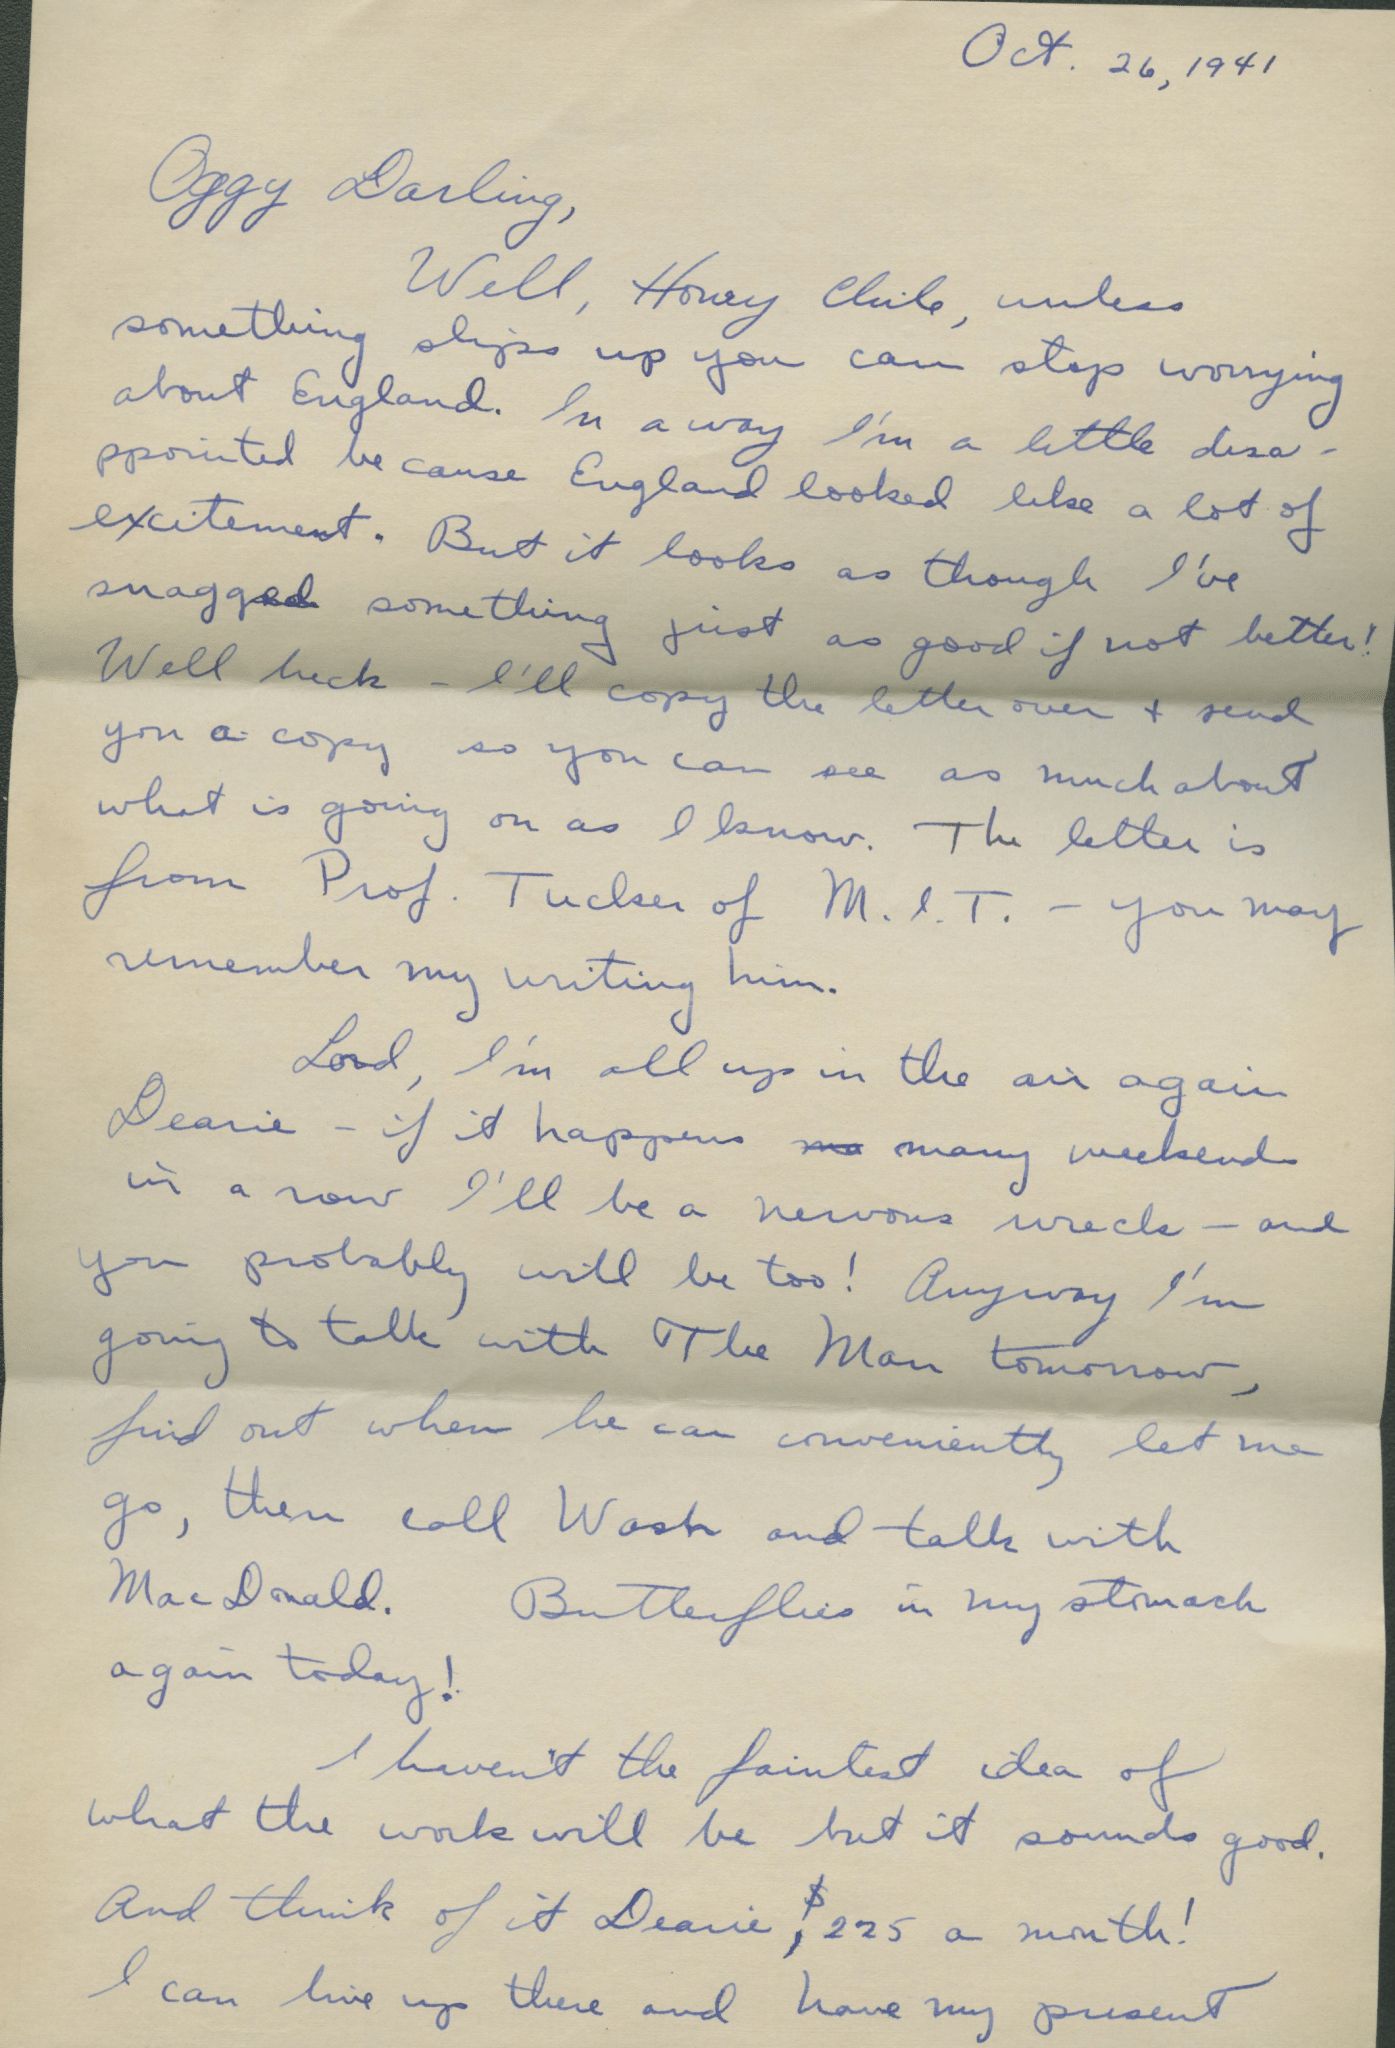 Oct. 26, 1941
Oggy Darling,
Well, Honey Chile, unless
something slips up you can stop worrying
about England. In a way I'm a little disa-
ppointed because England looked like a lot of
excitement. But it looks as though I've
snagged something just as good if not better!
Well heck - I'll copy the letter over + send
you a copy so you can see as much about
what is going on as I know. The letter is
from Prof. Tucker of M.I.T. - you may
remember my writing him.
Lord, I'm all up in the air again
Dearie - if it happens ma many weekends
in a row I'll be a nervous wreck - and
you probably will be too! Anyway I'm
going to talk with The Man tomorrow,
find out when he can conveniently let me
go, then call Wash and talk with
MacDonald. Butterflies in my stomach
again today!
I haven't the faintest idea of
what the work will be but it sounds good.
And think of it Dearie, $225 a month!
I can live up there and have my present